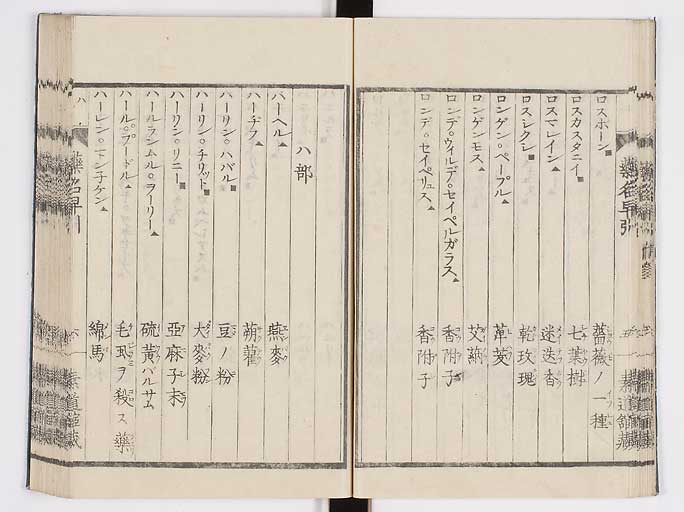 ロスボーン■ 薔薇ノ一種
ロスカスタニイ■ 七葉樹
ロスマレイン▲ 迷迭香
ロスレクレ■ 乾玫瑰
ロンゲン○ペープル▲ 蓽茇
ロンゲンモス▲ 艾蒳
ロンデ○ウィルデ○セイペルガラス▲ 香附子
ロンデ○セイペリュス▲ 香附子
藥名早引
ハ部
ハーヘル▲ 燕麥
ハーヂフ▲ 蒴藋
ハーリン○ハバル■ 豆ノ粉
ハーリン○チリット■ 大麥粉
ハーリン○リニー■ 亞麻子末
ハールランムル○ラーリー▲ 硫黃バルサム
ハール○プードル▲ 毛虱ヲ殺ス藥
ハーレン○マン子ケン▲ 綿馬
藥名早引